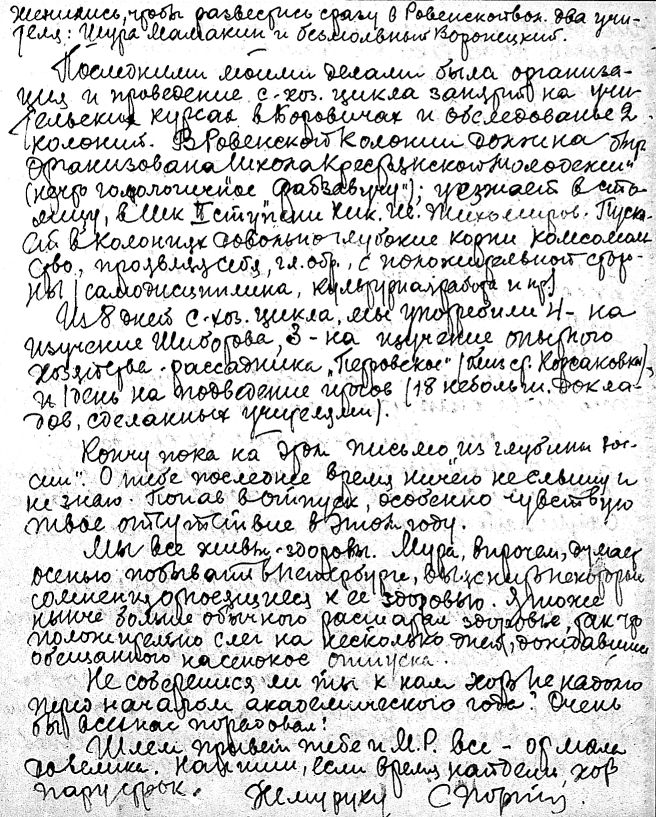 женились, чтобы развестись сразу в Ровенской вол. два учи-
теля: Шура Мамакин и безмолвный Воронецкий.
Последними моими делами была организа-
ция и проведение с.-хоз. цикла занятий на учи-
тельских курсах в Боровичах и обследованье 2
колоний. В Ровенской Колонии должна быть
организована "Школа Крестьянской Молодежи"
(нечто гомологичное "фабзавучу"); уезжает в сто-
лицу, в Шк II ступени Ник. Ив. Тихомиров. Пуска-
ет в Колониях довольно глубокие корни комсомоль-
ство, проявляя себя, гл. обр., с положительной сторо-
ны (самодисциплина, культурная работа и пр.)
Из 8 дней с.-хоз. цикла, мы употребили 4 - на
изучение Шиботова, 3 - на изучение опытного
хозяйства - рассадника "Перовское" (близ ср. Корсаковки),
и 1 день на подведение итогов (18 небольш. докла-
дов, сделанных учителями).
Кончу пока на этом письмо "из глубины Рос-
сии". О тебе последнее время ничего не слышу и
не знаю. Попав в отпуск, особенно чувствую
твое отсутствие в этом году.
Мы все живы-здоровы. Мура, впрочем, думает
осенью побывать в Петербурге, выяснить некоторые
сомнения относящиеся к ее здоровью. Я тоже
нынче больше обычного расшатал здоровье, так что
положительно слег на несколько дней, дождавшись
обещанного на сенокос отпуска.
Не соберешься ли ты к нам хоть не надолго
перед началом академического года? Очень
бы всех нас порадовал!
Шлем привет тебе и М.Р. все - от мала
до велика. Напиши, если время найдешь, хоть
пару строк. Жму руку С.